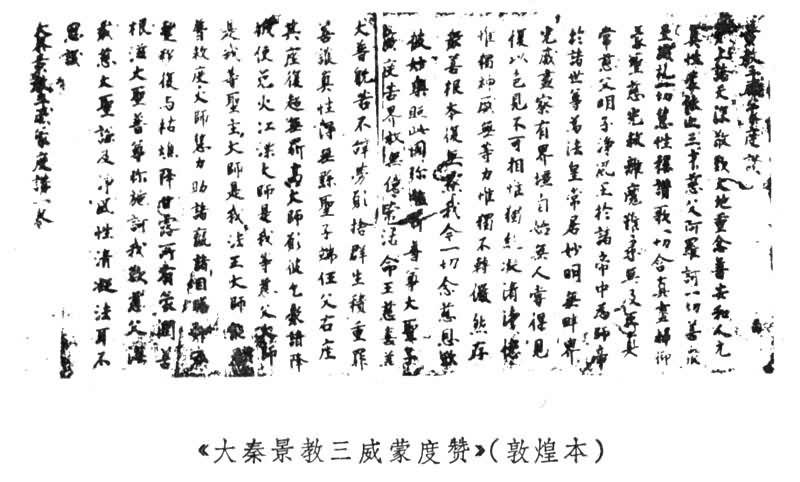 景教三威蒙度讚
無上諸天深敬歎大地重念普安和人元
真性蒙依止三才慈父阿羅訶一切善眾
至誠禮一切慧性稱讚歌一切含真盡歸仰
蒙聖慈光救離魔難尋無及正真
常慈父明子淨風王於諸帝中為師帝
於諸世尊為法皇常居妙明無畔界
光威盡察有界壃自始無人嘗得見
復以色見不可相惟獨絕凝清淨德
惟獨神威無等力惟獨不轉儼然存
眾善根本復無極我今一切念慈恩歎
彼妙樂照此國彌施訶普尊大聖子
廣度苦界救無億常活命王慈喜羔
大普耽苦不辭勞願捨群生積重罪
善護真性得無繇聖子端任父右座
其座復超無鼎高大師願彼乞眾請降
栰使免火江漂大師是我等慈父大師
是我等聖主大師是我法王大師能
普救度大師慧力助諸羸諸目瞻仰不
暫移復与枯燋降甘露所有蒙潤善
根滋大聖普尊弥施訶我歎慈父海
藏慈大聖謙及淨風性清凝法耳不
思議
大秦景教三威蒙度讚一卷
《大秦景教三威蒙度赞》(敦煌本)